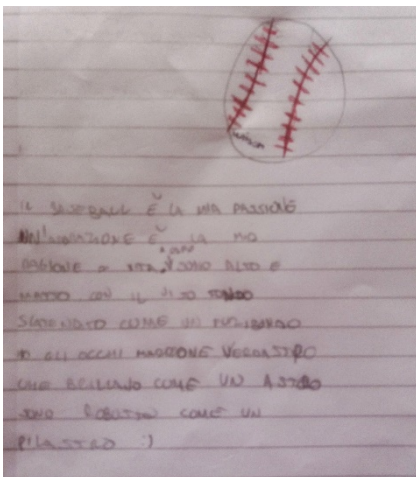 IL BASEBALL È LA MIA PASSIONE
È LA MIA
RAGIONE DI VITA, SONO ALTO E
MATTO CON IL VISO TONDO
SCATENATO COME UN FURIBONDO
GLI OCCHI MARRONE VERDASTRO
CHE BRILLANO COME UN ASTRO
SONO ROBUSTO COME UN
PILASTRO :)